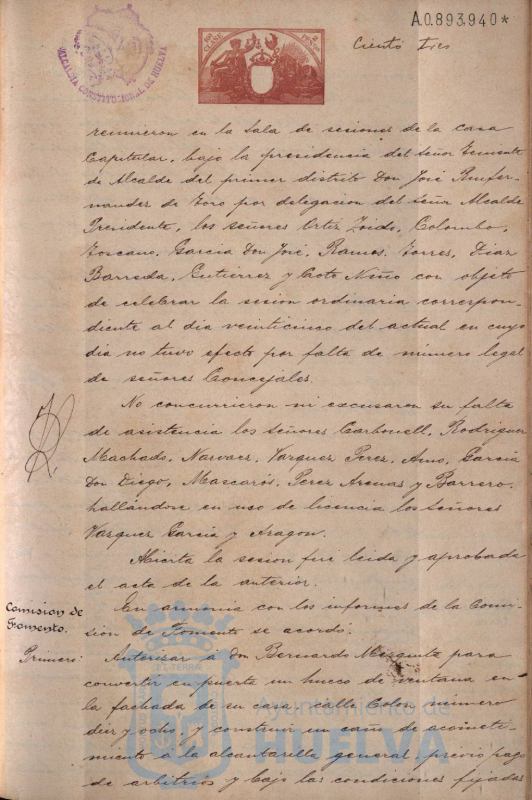 A.0.893.940*
10ª CLASE 2 PESETAS
ALCALDIA CONSTITUCIONAL DE HUELVA
Ciento tres
reunieron en la Sala de sesiones de la casa
Capitular, bajo la presidencia del Señor Teniente
de Alcalde del primer distrito Don José Ponfer-
nandez de Toro por delegacion del Señor Alcalde
Presidente, los señores Ortiz Toido, Colombo,
Toscano, Garcia Don José, Ramos, Torres, Diaz
Barreda, Gutierrez y Coto Niño con objeto
de celebrar la sesion ordinaria correspon-
diente al dia veinticinco del actual en cuyo
dia no tuvo efecto por falta de número legal
de señores Concejales.
No concurrieron ni excusaron su falta
de asistencia los señores Carbonell, Rodriguez
Machado, Narvaez, Vazquez Perez, Amo, Garcia
Don Diego, Mascarós, Perez Arenas y Barrero,
hallándose en uso de licencia los Señores
Vazquez Garcia y Aragon.
Abierta la sesion fué leida y aprobada
el acta de la anterior.
Comision de
Fomento.
En armonia con los informes de la Comi-
sion de Fomento se acordó.
Primero:
Autorizar á Dn Bernardo Mezquita para
convertir en puerta un hueco de ventana en
la fachada de su casa, calle Colon, número
diez y ocho, y construir un caño de acometi-
miento á la alcantarilla general, previo pago
de arbitrios y bajo las condiciones fijadas
Ayuntamiento de
HUELVA